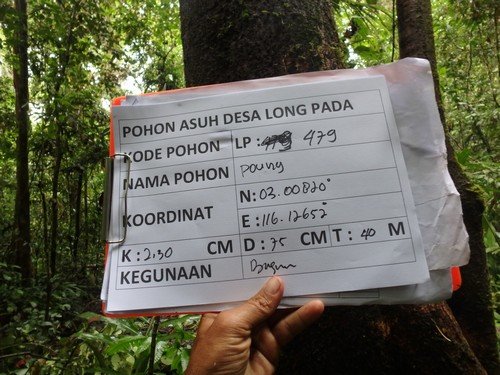 POHON ASUH DESA LONG PADA
KODE POHON LP : 479
NAMA POHON
KOORDINAT N: 03.00820°
E : 116.12652°
K : 2,30 CM D : 75 CM T : 40 M
KEGUNAAN